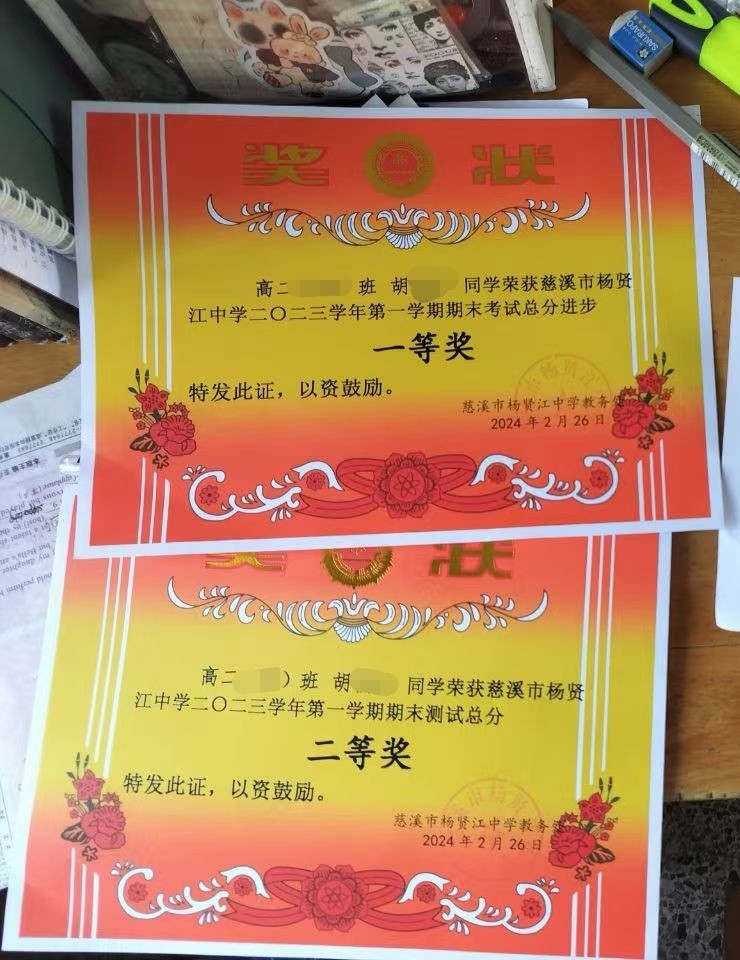 SAKURA
奖 状
高二 班 胡 同学荣获慈溪市杨贤
江中学二〇二三学年第一学期期末考试总分进步
一等奖
特发此证，以资鼓励。
慈溪市杨贤江中学教务处
2024年2月26日
奖 状
高二 ）班 胡 同学荣获慈溪市杨贤
江中学二〇二三学年第一学期期末测试总分
二等奖
特发此证，以资鼓励。
慈溪市杨贤江中学教务处
2024年2月26日